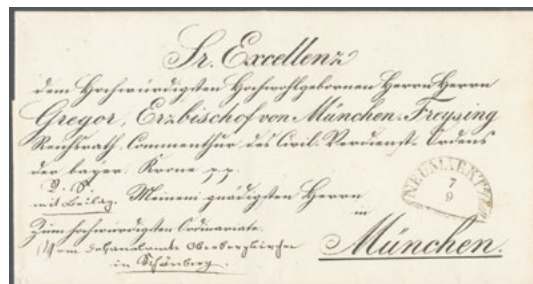 Sr. Excellenz
dem Hochwürdigsten Hochwohlgebornen Herrn Herrn
Gregor, Erzbischof von München-Freysing
Reichsrath, Commenthur des Civil-Verdienst-Ordens
der bayer: Krone p.p.
D. S.
mit Beilag. Meinem gnädigsten Herrn
in
Zum hochwürdigsten Ordinariate.
München.
Vom Dekanalamte Oberbergkirchen
in Schönberg.
NEUMARKT
7
9